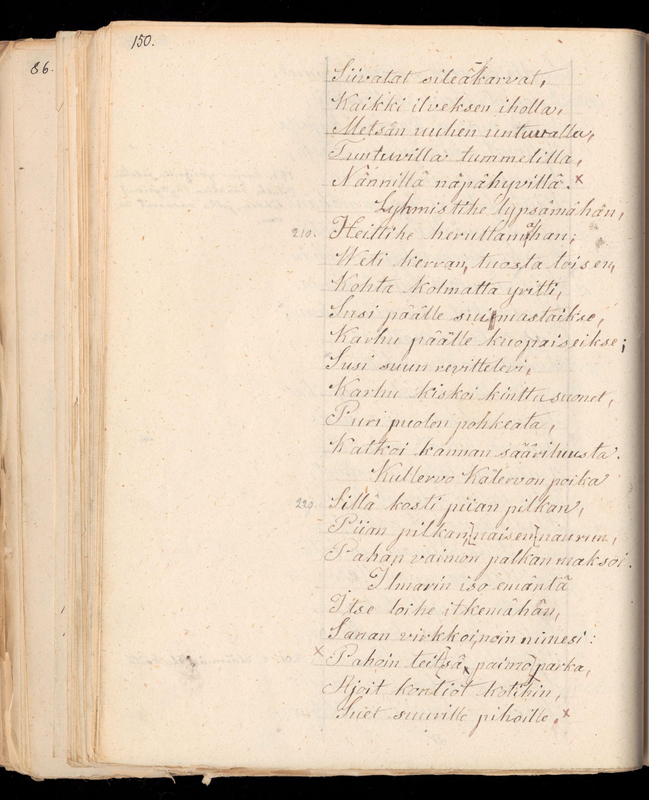 86.
150.
Siivatat sileäkarvat,
Kaikki ilveksen iholla,
Metsän uuhen untuwalla,
Tuntuvilla tummelilla,
Nännillä näpähyvillä. x
Lyhmistihe lypsämähän,
210. Heittihe heruttamahan;
Weti kerran, tuosta toisen,
Kohta kolmatta yritti,
Susi päälle suimastaikse,
Karhu päälle kuopaiseikse;
Susi suun revittelevi,
Karhu kiskoi kinttusuonet,
Puri puolen pohkeata,
Katkoi kannan sääriluusta.
Kullervo Kalervon poika
220. Sillä kosti piian pilkan,
Piian pilkan, naisen naurun,
Pahan vaimon palkan maksoi.
Ilmarin iso emäntä
Itse loihe itkemähän,
Sanan virkkoi, noin nimesi:
x Pahoin teitsä, paimo parka,
Ajoit kontiot kotihin,
Suet suurille pihoille. x